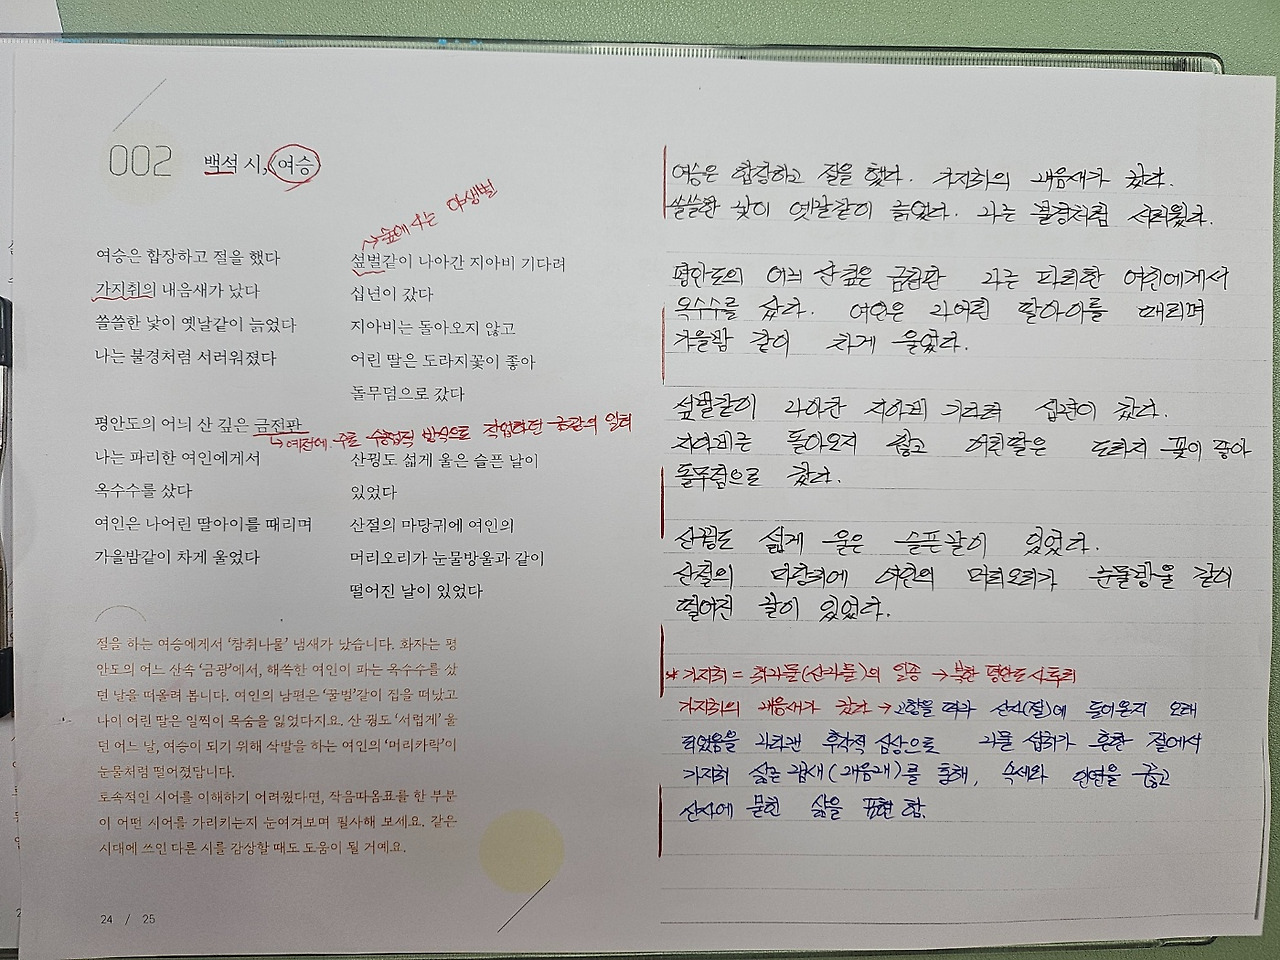 002 백석 시, <여승>
여승은 합장하고 절을 했다
가지취의 내음새가 났다
쓸쓸한 낯이 옛날같이 늙었다
나는 불경처럼 서러워졌다
평안도의 어늬 산 깊은 금전판
→예전에 주로 수공업적 방식으로 작업하던 금광의 일터
나는 파리한 여인에게서
옥수수를 샀다
여인은 나어린 딸아이를 때리며
가을밤같이 차게 울었다
→숲에 사는 야생벌
섶벌같이 나아간 지아비 기다려
십년이 갔다
지아비는 돌아오지 않고
어린 딸은 도라지꽃이 좋아
돌무덤으로 갔다
산꿩도 섧게 울은 슬픈 날이
있었다
산절의 마당귀에 여인의
머리오리가 눈물방울과 같이
떨어진 날이 있었다
절을 하는 여승에게서 '참취나물' 냄새가 났습니다. 화자는 평
안도의 어느 산속 '금광'에서, 해쓱한 여인이 파는 옥수수를 샀
던 날을 떠올려 봅니다. 여인의 남편은 '꿀벌'같이 집을 떠났고
나이 어린 딸은 일찍이 목숨을 잃었다지요. 산 꿩도 '서럽게' 울
던 어느 날, 여승이 되기 위해 삭발을 하는 여인의 '머리카락'이
눈물처럼 떨어졌답니다.
토속적인 시어를 이해하기 어려웠다면, 작음따옴표를 한 부분
이 어떤 시어를 가리키는지 눈여겨보며 필사해 보세요. 같은
시대에 쓰인 다른 시를 감상할 때도 도움이 될 거예요.
24 / 25
여승은 합장하고 절을 했다. 가지취의 내음새가 났다.
쓸쓸한 낯이 옛날같이 늙었다. 나는 불경처럼 서러웠다.
평안도의 어늬 산 깊은 금점판 나는 파리한 여인에게서
옥수수를 샀다. 여인은 나어린 딸아이를 때리며
가을밤 같이 차게 울었다.
섶벌같이 나아간 지아비 기다려 십년이 갔다.
지아비는 돌아오지 않고 어린딸은 도라지 꽃이 좋아
돌무덤으로 갔다.
산꿩도 섧게 울은 슬픈날이 있었다.
산절의 마당귀에 여인의 머리오리가 눈물방울 같이
떨어진 날이 있었다.
* 가지취 = 취나물(산나물)의 일종 → 북한 평안도 사투리
가지취의 내음새가 났다 → 고향을 떠나 산사(절)에 들어온지 오래
되었음을 나타낸 후각적 심상으로 나물 섭취가 흔한 절에서
가지취 삶은 냄새(내음새)를 통해, 속세와 인연을 끊고
산사에 묻힌 삶을 표현 함.